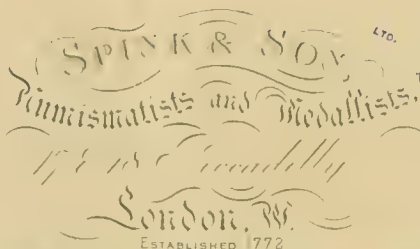 SPINK & SON, LTD.
Numismatists and Medallists,
Piccadilly
London, W.
ESTABLISHED 1772